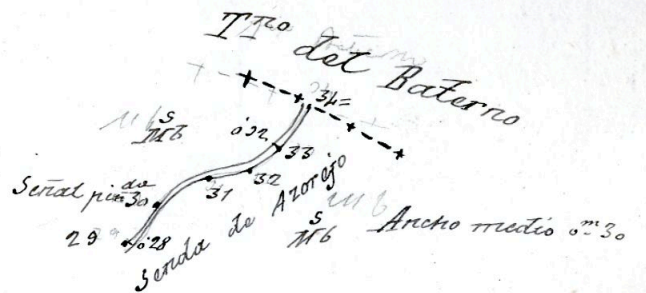 Tno del Baterno
34=
S
Mb
0'32
33
32
31
Señal pinda 30
29
0'28
Senda de Azorejo
S
Mb
Ancho medio 0m30